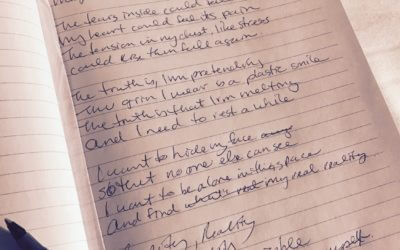 The tears inside could
my heart could feel its pain
The tension in my chest, like stress
could rise then fall again.
The truth is, I'm pretending
The grin I wear is a plastic smile
The truth is that I'm melting
And I need to rest a while
I want to hide my face
so that no one else can see
I want to be alone in this space
And find what's real my real reality
Reality